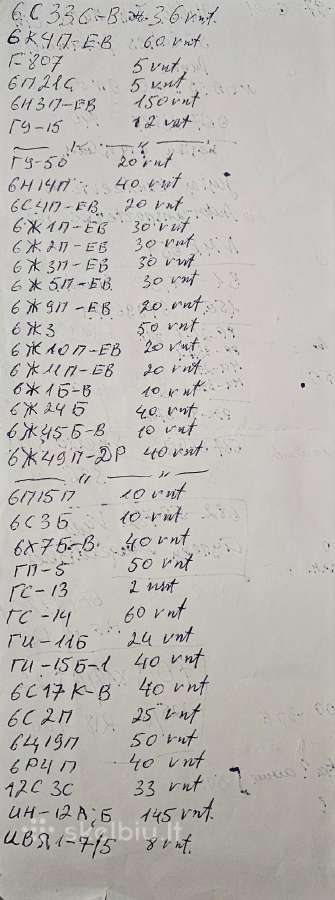 6С33С-В 36 vnt.
6К4П-ЕВ 60 vnt
Г-807 5 vnt
6П21С 5 vnt
6Н3П-ЕВ 150 vnt
ГУ-15 12 vnt
ГУ-50 20 vnt
6Н14П 40 vnt
6С4П-ЕВ 20 vnt
6Ж1П-ЕВ 30 vnt
6Ж2П-ЕВ 30 vnt
6Ж3П-ЕВ 30 vnt
6Ж5П-ЕВ 30 vnt
6Ж9П-ЕВ 20 vnt
6Ж3 50 vnt
6Ж10П-ЕВ 20 vnt
6Ж11П-ЕВ 20 vnt
6Ж1Б-В 10 vnt
6Ж24Б 40 vnt
6Ж45Б-В 10 vnt
6Ж49П-ДР 40 vnt
6П15П 10 vnt
6С3Б 10 vnt
6Х7Б-В 40 vnt
ГП-5 50 vnt
ГС-13 2 vnt
ГС-14 60 vnt
ГИ-11Б 24 vnt
ГИ-15Б-1 40 vnt
6С17К-В 40 vnt
6С2П 25 vnt
6Ц19П 50 vnt
6Р4П 40 vnt
12С3С 33 vnt
ИН-12А;Б 145 vnt.
8 vnt.
skelbiu.lt